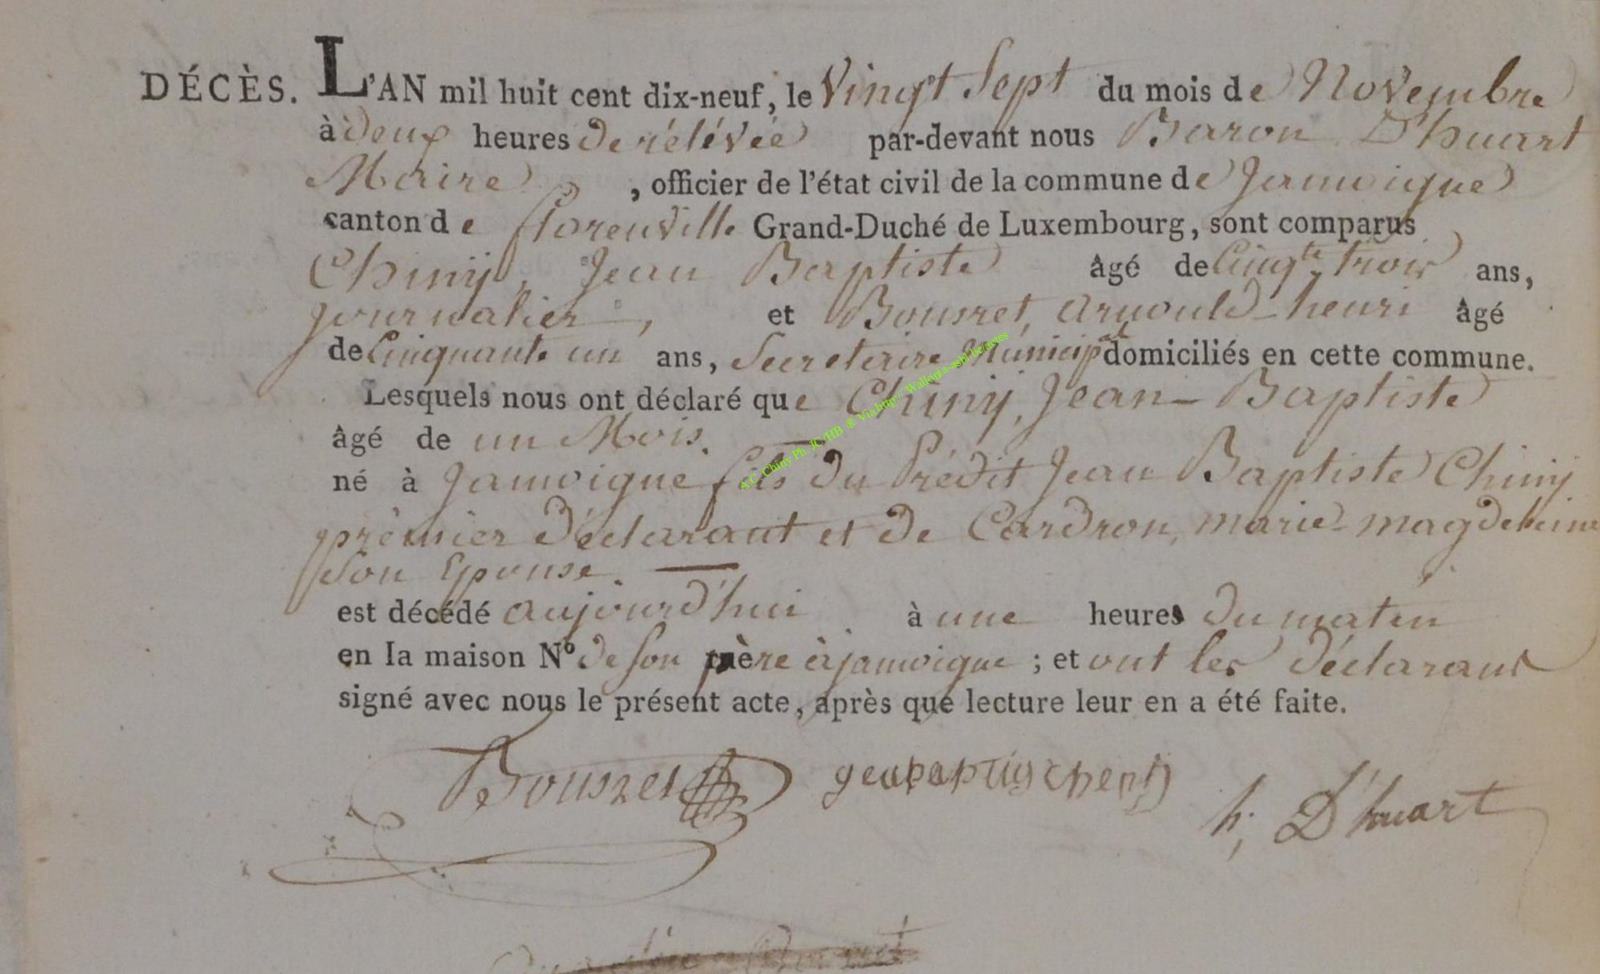 DÉCÈS. L'AN mil huit cent dix-neuf, le Vingt Sept du mois de Novembre
à deux heures de rélévée par-devant nous Baron D'huart
Maire, officier de l'état civil de la commune de Jamoigne
canton de florenville Grand-Duché de Luxembourg, sont comparus
Chiny, Jean Baptiste âgé de Cinqte trois ans,
journalier, et Bousret, Arnould-henri âgé
de Cinquante un ans, Secretaire Municipal domiciliés en cette commune.
Lesquels nous ont déclaré que Chiny, Jean-Baptiste
âgé de un Mois.
né à Jamoigne fils du Prédit Jean Baptiste Chiny
prémier Déclarant et de Cardron, marie-magdeleine
Son Epouse.
est décédé aujourd'hui à une heures du matin
en la maison Nº de son père à jamoigne ; et ont les déclarans
signé avec nous le présent acte, après que lecture leur en a été faite.
Bousret
h, D'huart